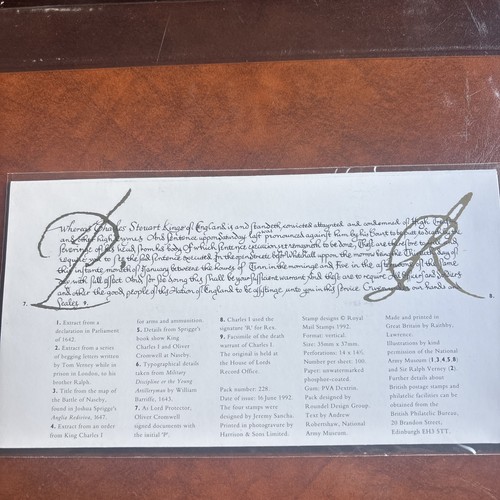 Whereas Charles Steuart Kinge of England is and standeth convicted attaynted and condemned of High Treason
and other high Crymes And sentence uppon Saturday last was pronounced against him by this Court to be putt to death by the
severinge of his head from his body Of which sentence execucon yet remayneth to be done, These are therefore to will and
require you to see the said sentence executed In the open Streete before Whitehall uppon the morrow being the Thirtieth day of
this instante moneth of January betweene the houres of Tenn in the morninge and Five in the afternoone of the same
day with full effect And for soe doing this shall be your sufficient warrant And these are to require All Officers and Souldiers
and other the good people of this Nation of England to be assistinge unto you in this service Given under our hands and
Seales 9.
P
R
7.
8.
1. Extract from a
declaration in Parliament
of 1642.
2. Extract from a series
of begging letters written
by Tom Verney while in
prison in London, to his
brother Ralph.
3. Title from the map of
the Battle of Naseby,
found in Joshua Sprigge's
Anglia Rediviva, 1647.
4. Extract from an order
from King Charles I
for arms and ammunition.
5. Details from Sprigge's
book show King
Charles I and Oliver
Cromwell at Naseby.
6. Typographical details
taken from Military
Discipline or the Young
Artilleryman by William
Barriffe, 1643.
7. As Lord Protector,
Oliver Cromwell
signed documents with
the initial 'P'.
8. Charles I used the
signature 'R' for Rex.
9. Facsimile of the death
warrant of Charles I.
The original is held at
the House of Lords
Record Office.
Pack number: 228.
Date of issue: 16 June 1992.
The four stamps were
designed by Jeremy Sancha.
Printed in photogravure by
Harrison & Sons Limited.
Stamp designs © Royal
Mail Stamps 1992.
Format: vertical.
Size: 35mm x 37mm.
Perforations: 14 x 14½.
Number per sheet: 100.
Paper: unwatermarked
phosphor-coated.
Gum: PVA Dextrin.
Pack designed by
Roundel Design Group.
Text by Andrew
Robertshaw, National
Army Museum.
Made and printed in
Great Britain by Raithby,
Lawrence.
Illustrations by kind
permission of the National
Army Museum (1,3,4,5,8)
and Sir Ralph Verney (2).
Further details about
British postage stamps and
philatelic facilities can be
obtained from the
British Philatelic Bureau,
20 Brandon Street,
Edinburgh EH3 5TT.